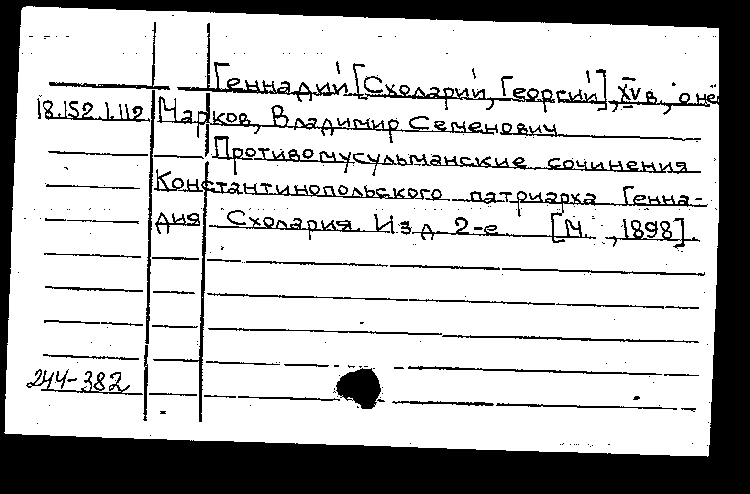 Геннадий [Схоларий, Георгий], XV в., о нём
18.152.1.112 Марков, Владимир Семенович
Противомусульманские сочинения
Константинопольского патриарха Генна-
дия Схолария. Изд. 2-е [М., 1898].
244-382